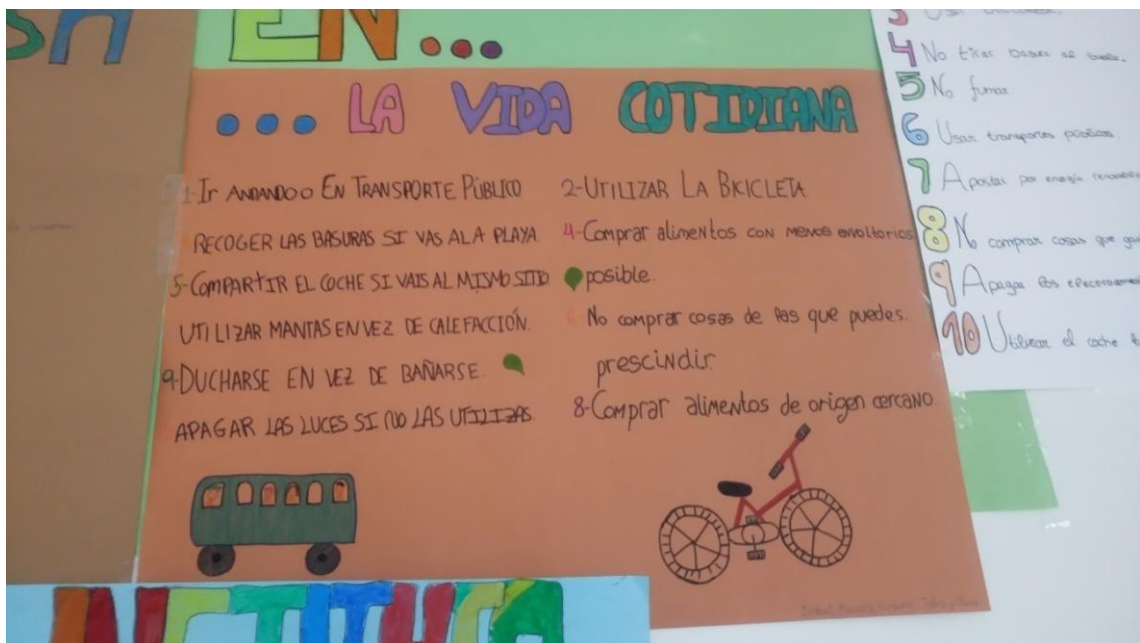 EN...
... LA VIDA COTIDIANA
1-IR ANDANDO O EN TRANSPORTE PÚBLICO
RECOGER LAS BASURAS SI VAS A LA PLAYA
5-COMPARTIR EL COCHE SI VAIS AL MISMO SITIO
UTILIZAR MANTAS EN VEZ DE CALEFACCIÓN.
9-DUCHARSE EN VEZ DE BAÑARSE.
APAGAR LAS LUCES SI NO LAS UTILIZAS.
2-UTILIZAR LA BICICLETA.
4-Comprar alimentos con menos envoltorios
posible.
6-No comprar cosas de las que puedes.
prescindir.
8-Comprar alimentos de origen cercano.
3
4 No tirar basura al suelo.
5 No fumar
6 Usar transportes públicos.
7 Apostar por energía
8 No comprar cosas que
9 Apagar los
10 Utilizar el coche